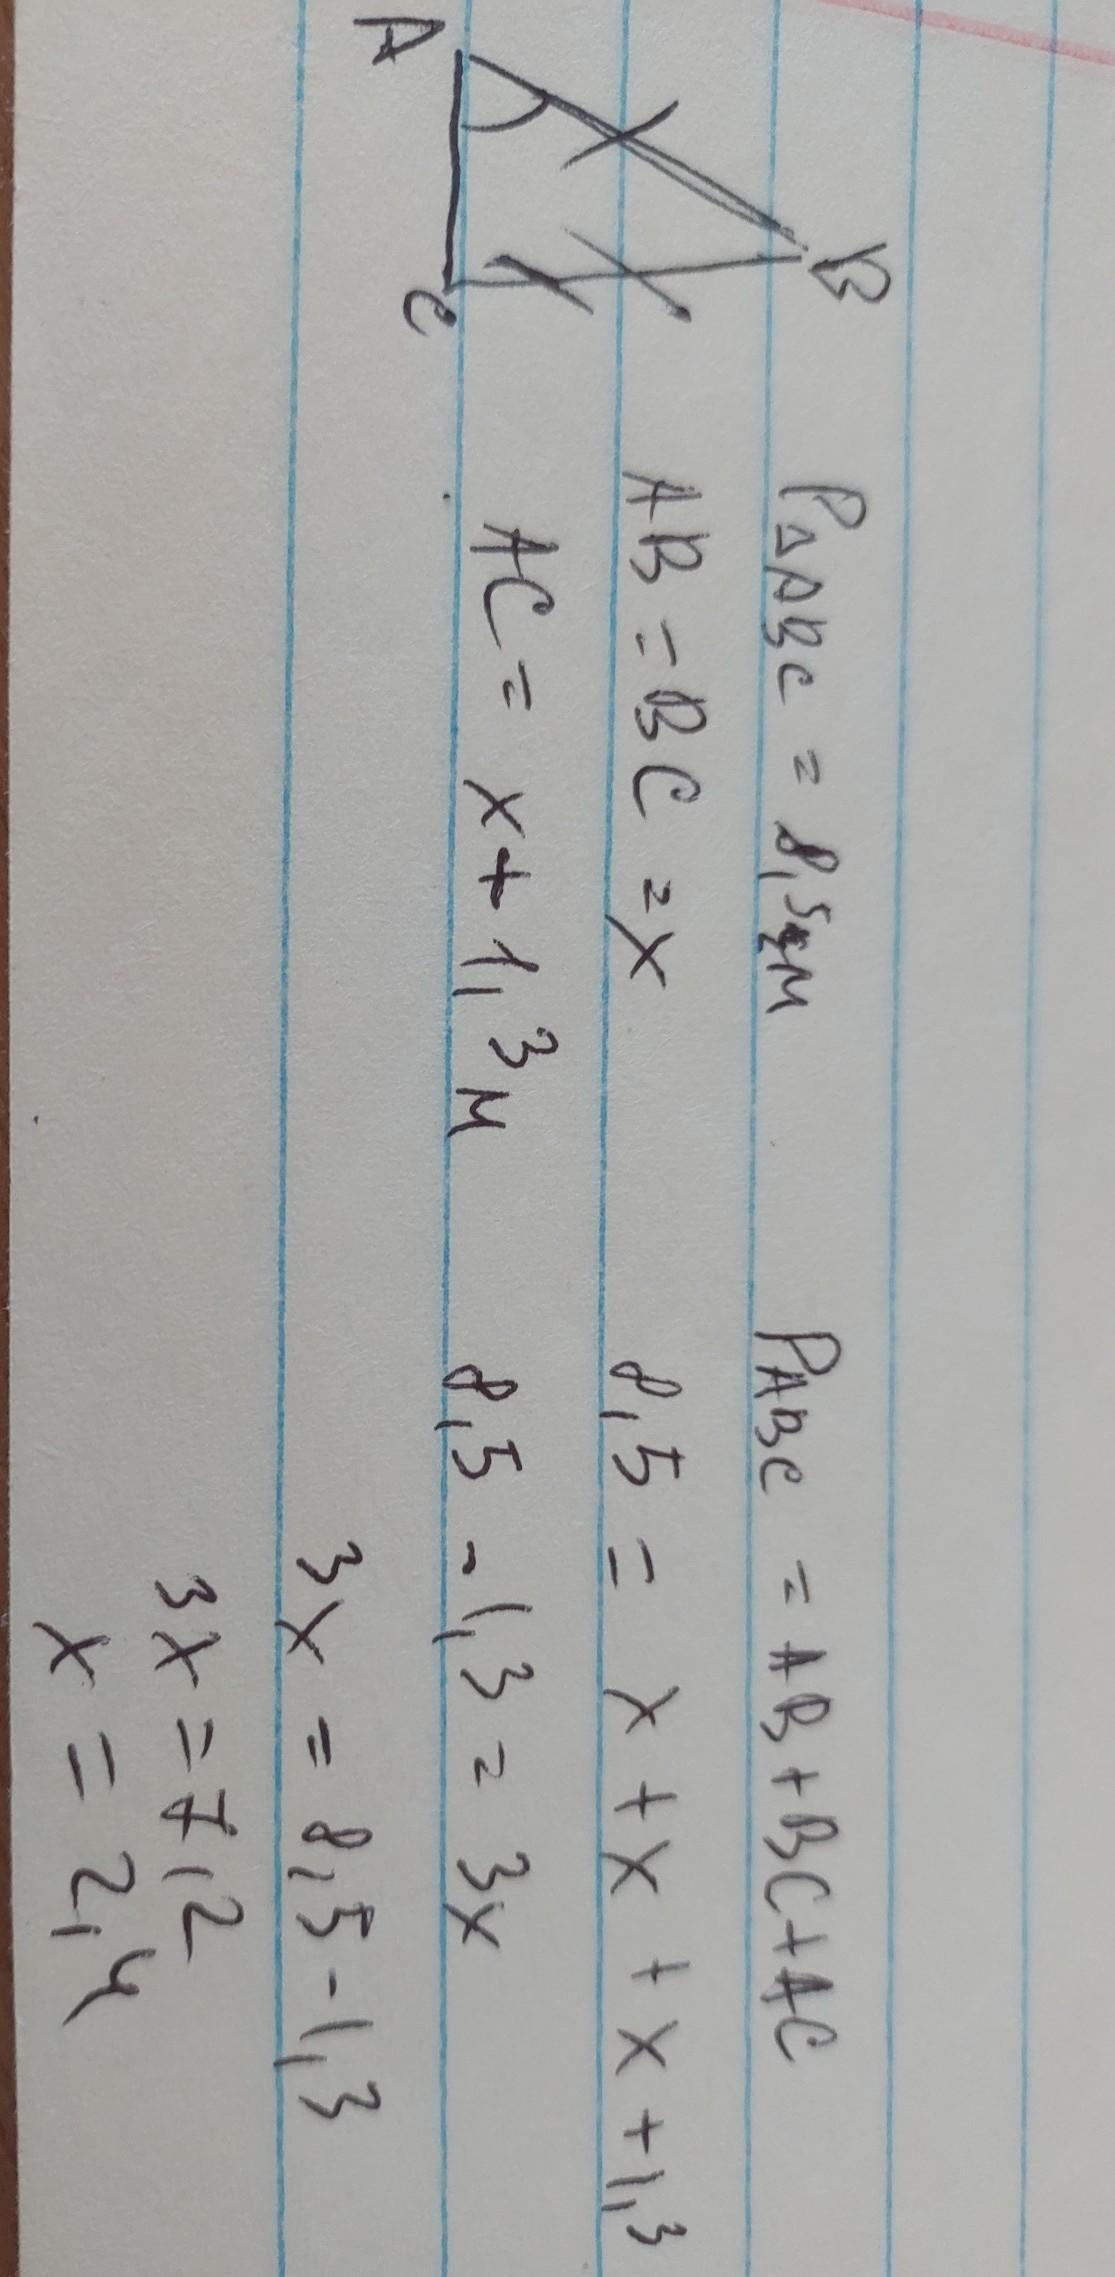 A
B
C
P△ABC = 8,5 м
AB = BC = x
AC = x + 1,3 м
PABC = AB + BC + AC
8,5 = x + x + x + 1,3
8,5 - 1,3 = 3x
3x = 8,5 - 1,3
3x = 7,2
x = 2,4